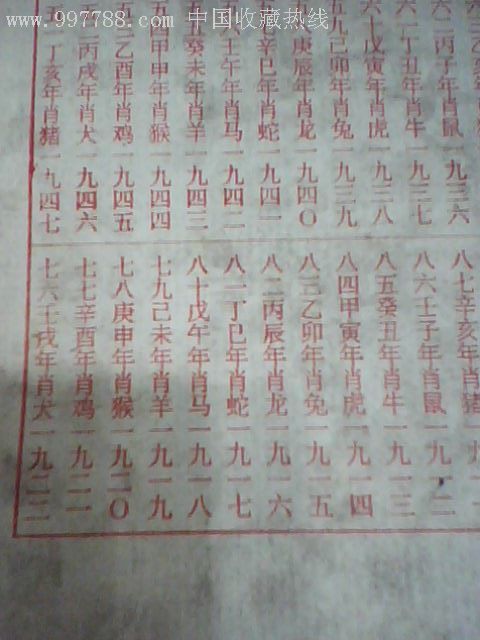 www.997788.com 中国收藏热线
六二丙子年肖鼠一九三六
六一丁丑年肖牛一九三七
六十戊寅年肖虎一九三八
五九己卯年肖兔一九三九
庚辰年肖龙一九四〇
辛巳年肖蛇一九四一
壬午年肖马一九四二
癸未年肖羊一九四三
甲申年肖猴一九四四
乙酉年肖鸡一九四五
丙戌年肖犬一九四六
丁亥年肖猪一九四七
八七辛亥年肖猪一九一
八六壬子年肖鼠一九一二
八五癸丑年肖牛一九一三
八四甲寅年肖虎一九一四
八三乙卯年肖兔一九一五
八二丙辰年肖龙一九一六
八一丁巳年肖蛇一九一七
八十戊午年肖马一九一八
七九己未年肖羊一九一九
七八庚申年肖猴一九二〇
七七辛酉年肖鸡一九二一
七六壬戌年肖犬一九二二